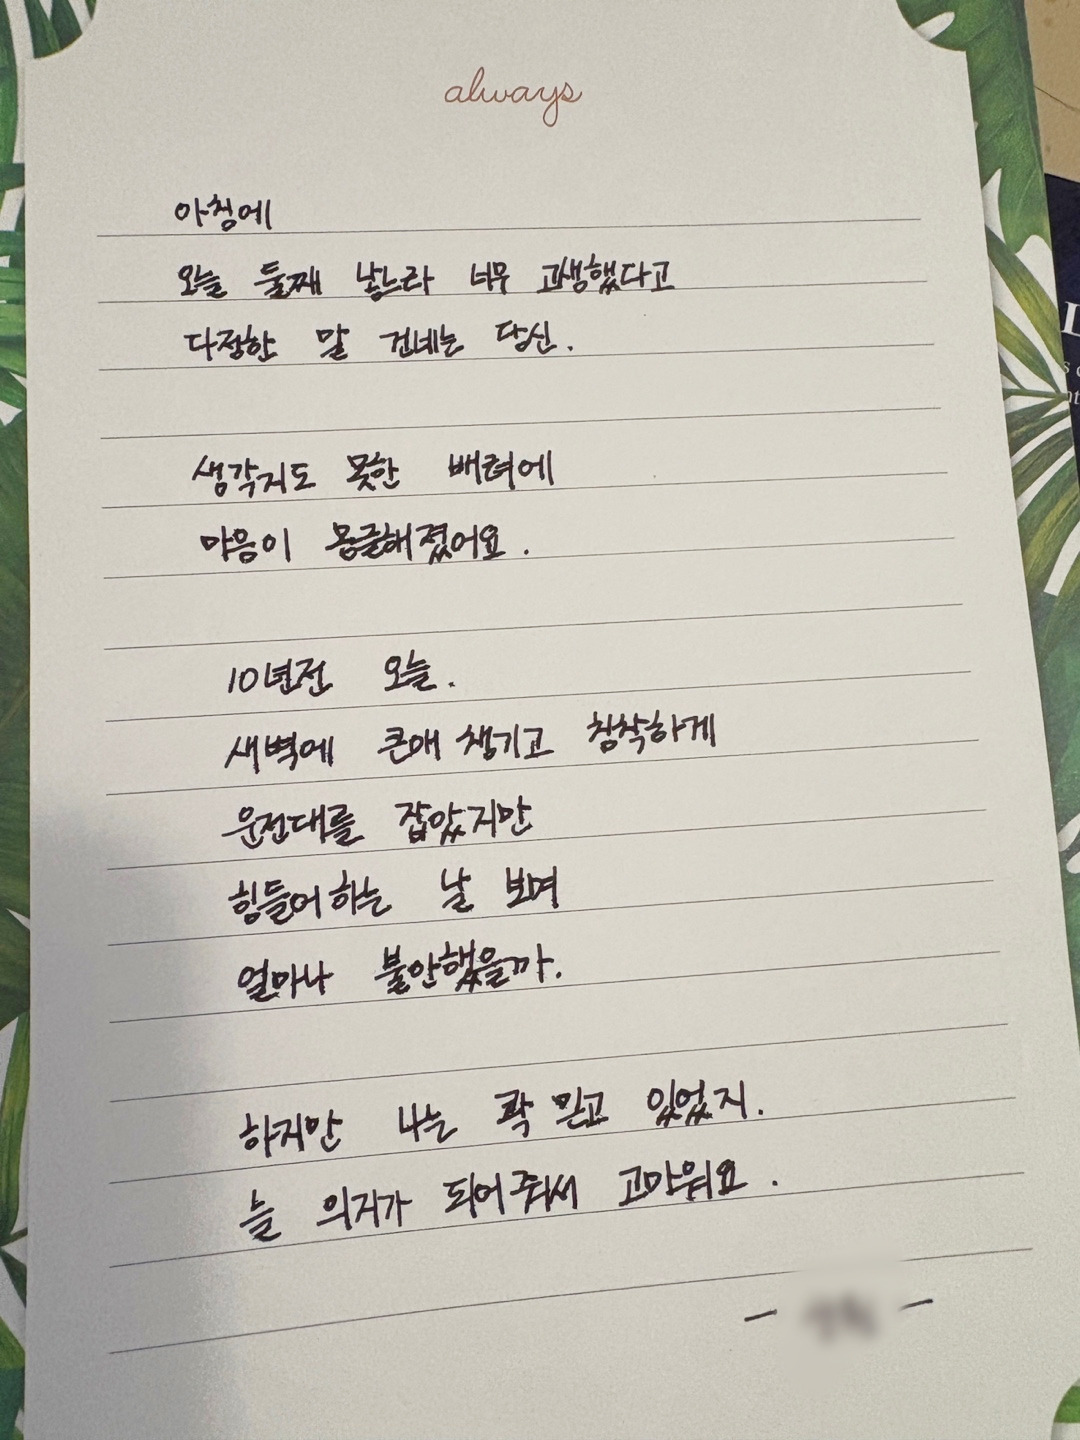 always
아침에
오늘 둘째 낳느라 너무 고생했다고
다정한 말 건네는 당신.
생각지도 못한 배려에
마음이 몽글해졌어요.
10년전 오늘.
새벽에 큰애 챙기고 침착하게
운전대를 잡았지만
힘들어하는 날 보며
얼마나 불안했을까.
하지만 나는 꽉 믿고 있었지.
늘 의지가 되어줘서 고마워요.